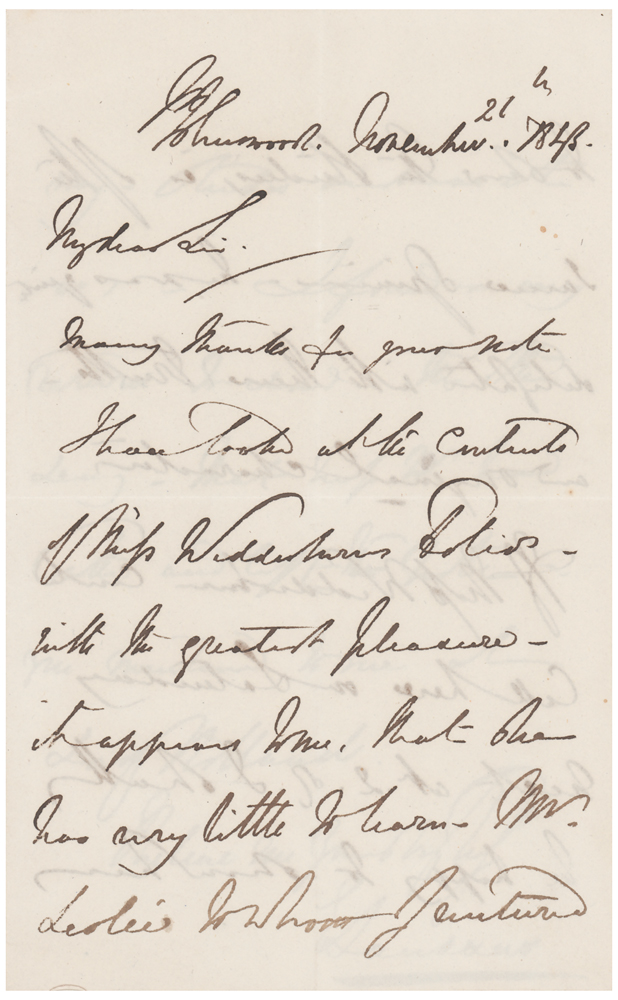 St Johnswood. November. 21th 1843.
My dear Sir.
Many thanks for your note
I have looked at the contents
of Miss Wedderburns Folios -
with the greatest pleasure -
it appears to me, that she
has very little to learn - Mr.
Leslie to whom I ventured